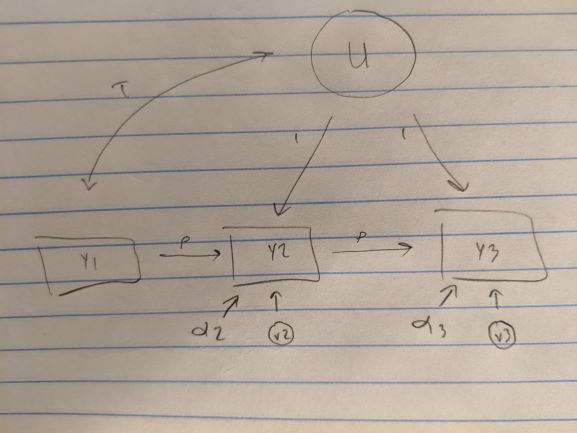 U
τ
1 1
Y1 ρ Y2 ρ Y3
α2 v2 α3 v3